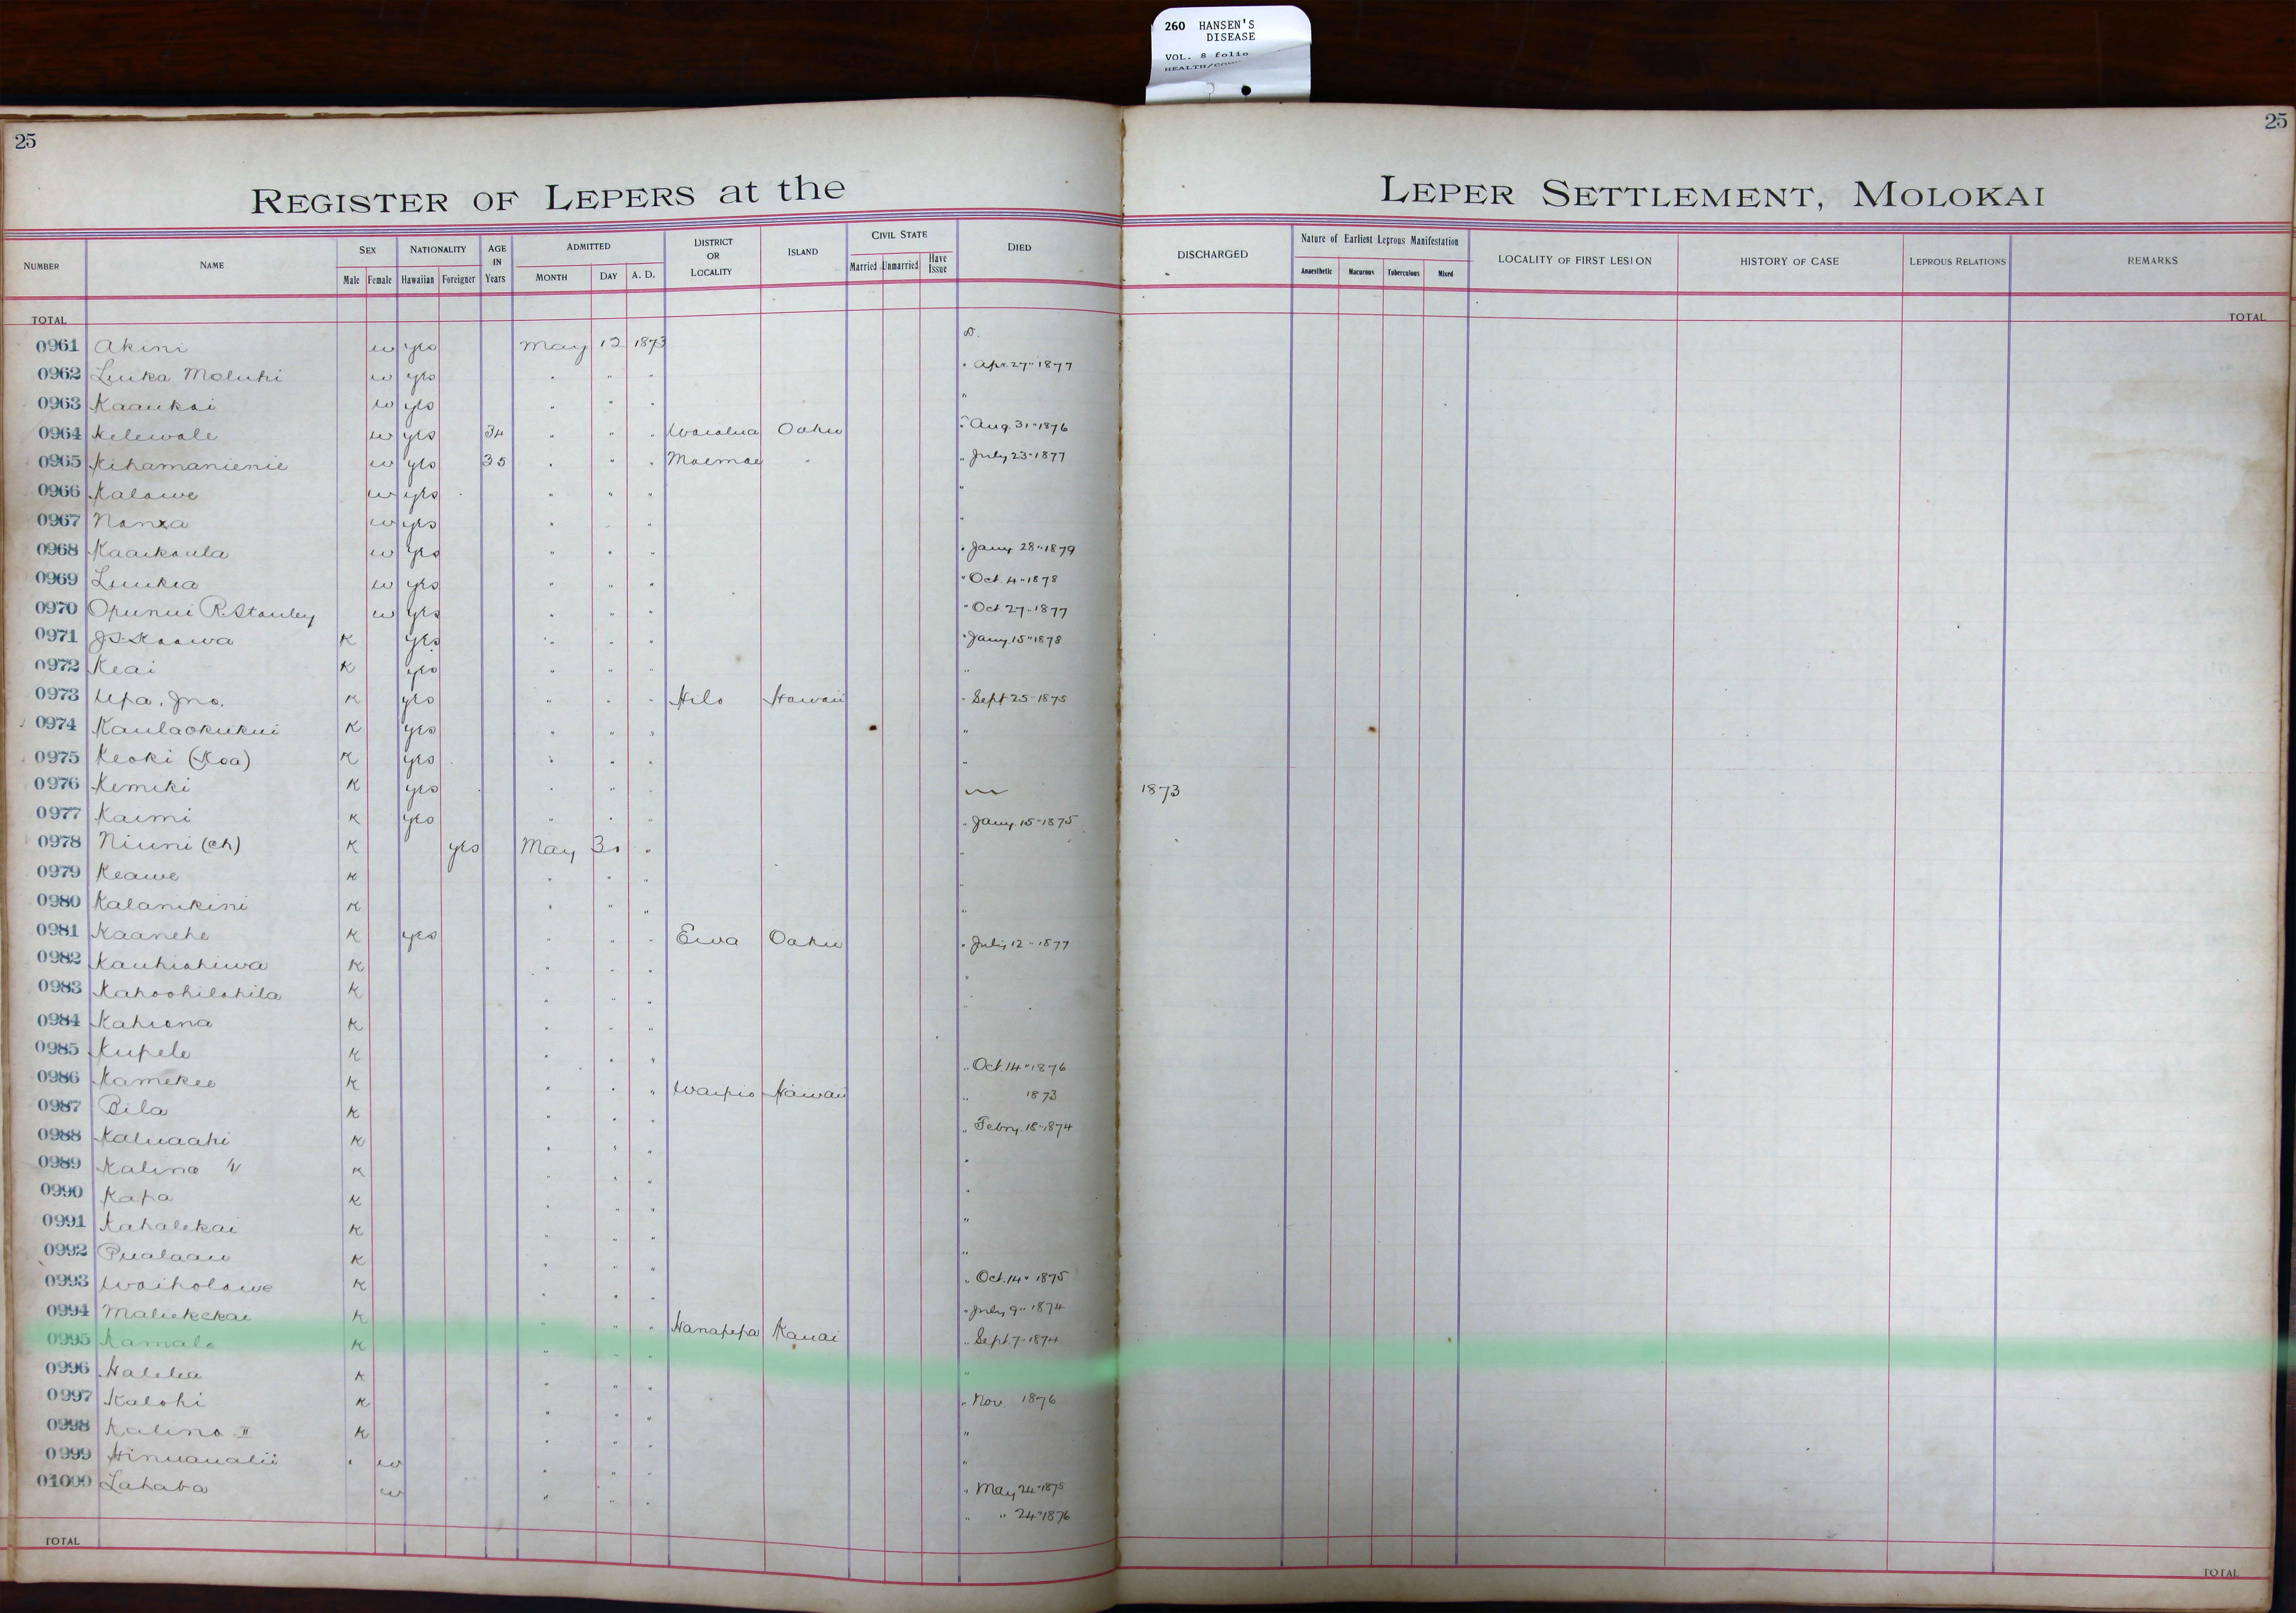 260 HANSEN'S
DISEASE
VOL. 8 folio
25
25
REGISTER OF LEPERS at the LEPER SETTLEMENT, MOLOKAI
NUMBER NAME SEX Male Female NATIONALITY Hawaiian Foreigner AGE IN Years ADMITTED MONTH DAY A. D. DISTRICT OR LOCALITY ISLAND CIVIL STATE Married Unmarried Have Issue DIED DISCHARGED Nature of Earliest Leprous Manifestation Anaesthetic Macurous Tuberculous Mixed LOCALITY OF FIRST LESION HISTORY OF CASE LEPROUS RELATIONS REMARKS
TOTAL TOTAL
0961 Akini w yes May 12 1873 D.
0962 Luika Moluhi w yes " " " " Apr. 27" 1877
0963 Kaaukai w yes " " " "
0964 Kelewale w yes 34 " " " Waialua Oahu " Aug. 31" 1876
0965 Kihamanienie w yes 35 " " " Moemoe " " July 23" 1877
0966 Kalawe w yes " " " "
0967 w yes " " " "
0968 Kaaikaula w yes " " " " Jany. 28" 1879
0969 Luukia w yes " " " " Oct. 4" 1878
0970 Opunui R. Stanley w yes " " " " Oct 27" 1877
0971 J.S. Kaawa K yes " " " " Jany. 15" 1878
0972 Keai K yes " " " "
0973 Upa, Jno. K yes " " " Hilo Hawaii " Sept 25" 1875
0974 Kaulaokukui K yes " " " "
0975 Keoki (Koa) K yes " " " "
0976 Kemiki K yes " " " 1873
0977 Kaimi K yes " " " " Jany. 15" 1875
0978 Niuni (ch) K yes May 30 " "
0979 Keawe K " " " "
0980 Kalanikini K " " " "
0981 Kaanehe K yes " " " Ewa Oahu " July 12" 1877
0982 Kauhiohiwa K " " " "
0983 Kahoohilohila K " " " "
0984 Kahiona K " " "
0985 Kupele K " " " " Oct. 14" 1876
0986 Kamekeo K " " " Waipio Hawaii " 1873
0987 Bila K " " " " Febry. 18" 1874
0988 Kaluaahi K " " " "
0989 Kalino K " " " "
0990 Kapa K " " " "
0991 Kahalekai K " " " "
0992 Pualaau K " " " " Oct. 14" 1875
0993 Waiholowe K " " " " July 9" 1874
0994 Maliekekai K " " " Hanapepe Kauai " Sept. 7" 1874
0995 Kamalo K " " " "
0996 Halelea K " " " " Nov. 1876
0997 Kalohi K " " " "
0998 Kalino II K " " " "
0999 Hinuaualii w " " " " May 24" 1875
01000 Lahaba w " " " " " 24" 1876
TOTAL TOTAL